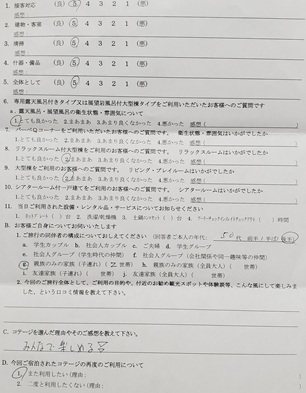 1. 接客対応 (良) 5 4 3 2 1 (悪)
感想:
2. 建物・客室 (良) 5 4 3 2 1 (悪)
感想:
3. 清掃 (良) 5 4 3 2 1 (悪)
感想:
4. 什器・備品 (良) 5 4 3 2 1 (悪)
感想:
5. 全体として (良) 5 4 3 2 1 (悪)
感想:
6. 専用露天風呂付きタイプ又は展望岩風呂付大型棟タイプをご利用いただいたお客様へのご質問です
a. 露天風呂・展望風呂の衛生状態・雰囲気について
1.とても良かった 2.まあまあ 3.あまり良くなかった 4.悪かった 感想(
7. バーベQコーナーをご利用いただいたお客様へのご質問です。 衛生状態・雰囲気はいかがでしたか
1.とても良かった 2.まあまあ 3.あまり良くなかった 4.悪かった 感想(
8. リラックスルーム付大型棟をご利用のお客様へのご質問です。 リラックスルームはいかがでしたか
1.とても良かった 2.まあまあ 3.あまり良くなかった 4.悪かった 感想(
9. 大型棟をご利用のお客様へのご質問です。 リビング・プレイルームはいかがでしたか
1.とても良かった 2.まあまあ 3.あまり良くなかった 4.悪かった 感想(
10. シアタールーム付一戸建てをご利用のお客様へのご質問です。 シアタールームはいかがでしたか
1.とても良かった 2.まあまあ 3.あまり良くなかった 4.悪かった 感想(
11. 当日ご利用された設備・レンタル品・サービスについてお知らせください
B. お客様ご自身についてお伺いいたします
1.ご旅行の回答者の構成についておしえてください (回答者ご本人の年代: 50代 前半/中/後半)
a. 学生カップル b. 社会人カップル c. ご夫婦 d. 学生グループ
e. 社会人グループ(学生時代の仲間) f. 社会人グループ(会社関係や同一趣味等の仲間)
g. 親族のみの家族(子連れ)(2世帯) h. 親族のみの家族(全員大人)( 世帯)
i. 友達家族(子連れ)( 世帯) j. 友達家族(全員大人)( 世帯)
2. 今回のご旅行全体として、ご利用の目的や、付近のお勧め観光スポットや体験談等、こんな風にして楽しみま
した、というロコミ情報を教えて下さい。
C. コテージを選んだ理由やそのご感想を教えて下さい。
みんなで楽しめる
D. 今回ご宿泊されたコテージの再度のご利用について
1. また利用したい(理由:
2. 二度と利用したくない(理由: